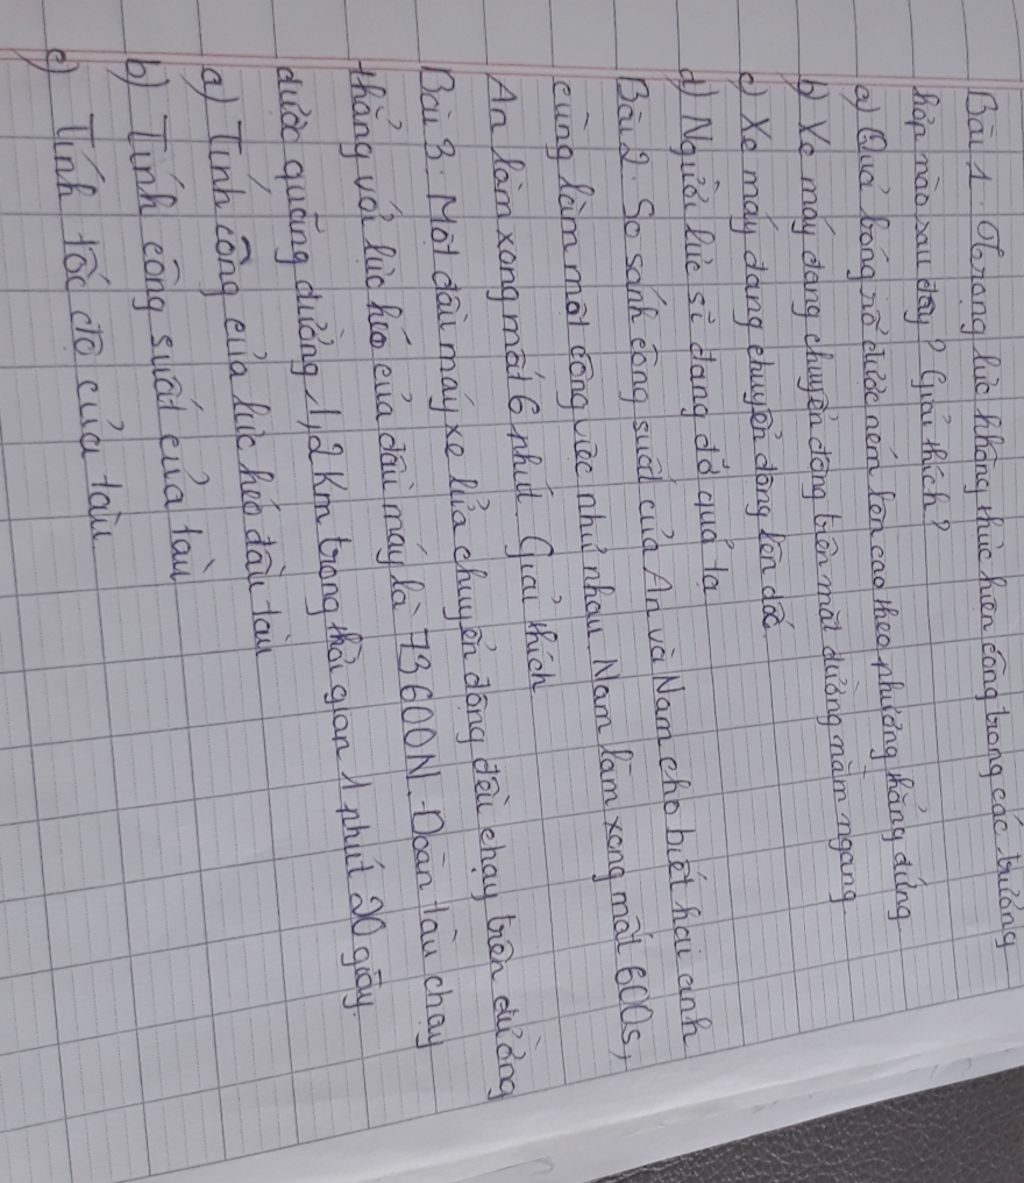 Bài 1. Trọng lực không thực hiện công trong các trường
hợp nào sau đây? Giải thích?
a) Quả bóng rổ được ném lên cao theo phương thẳng đứng
b) Xe máy đang chuyển động trên mặt đường nằm ngang
c) Xe máy đang chuyển động lên dốc.
d) Người lực sĩ đang đỡ quả tạ
Bài 2. So sánh công suất của An và Nam cho biết hai anh
cùng làm một công việc như nhau. Nam làm xong mất 600s,
An làm xong mất 6 phút. Giải thích
Bài 3. Một đầu máy xe lửa chuyển động đều chạy trên đường
thẳng với lực kéo của đầu máy là 73600N. Đoàn tàu chạy
được quãng đường 1,2 Km trong thời gian 1 phút 20 giây.
a) Tính công của lực kéo đầu tàu
b) Tính công suất của tàu
c) Tính tốc độ của tàu